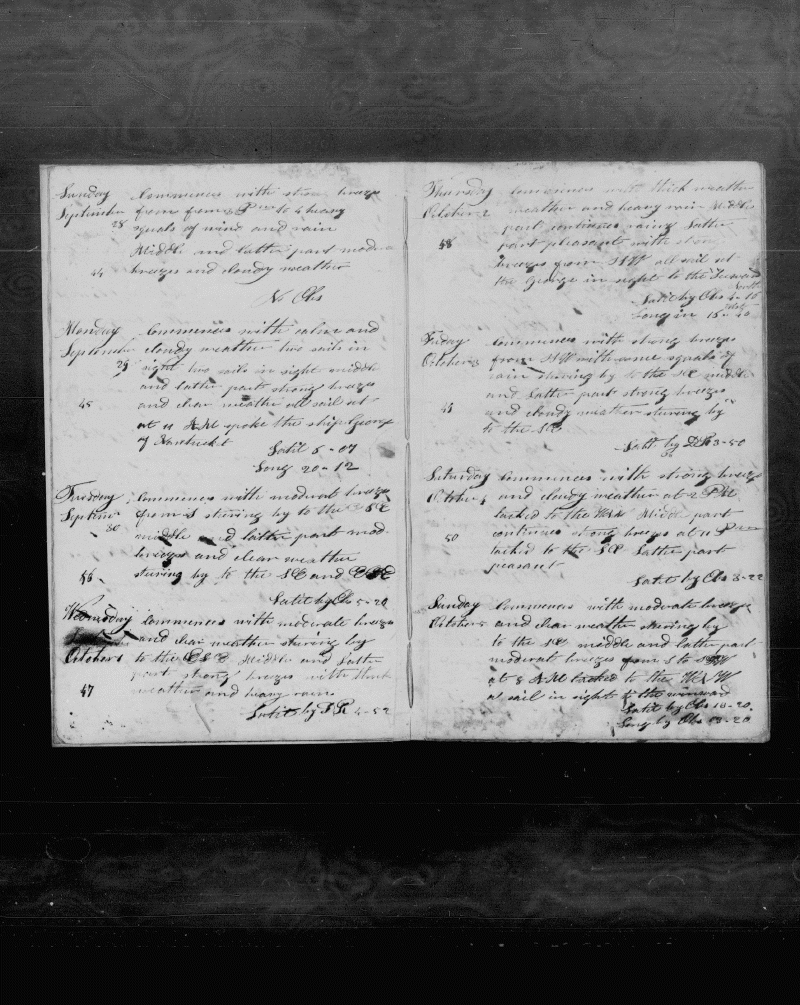 Sunday Commences with strong breezes
September from from to heavy
28 squals of wind and rain
Middle and latter part moder
44 breezes and cloudy weather
No Obs
Monday Commences with calms and
September cloudy weather two sails in
29 sight two sails in sight middle
and latter part strong breezes
45 and clear weather all sail set
at 11 AM spoke the ship George
of Nantucket Latit 5-07
Long 20-12
Tuesday Commences with moderat breezes
Septem from S stering by to the
30 middle and latter part mod
breezes and clear weather
46 stering by to the SE and ESE
Latit by Obs 5-20
Wednesday Commences with moderate breezes
and clear weather stering by
October 1 to the ESE Middle and Latter
part strong breezes with thick
47 weather and heavy rain
Latit by DR 4-52
Thursday Commences with thick weather
October 2 weather and heavy rain Middle
part continues rainy Latter
48 part pleasant with stron
breezes from all sail set
the George in sight to the Leeward
North
Latit by Obs 4-16
Long in 18-20
Friday Commences with strong breezes
October 3 from SW with some squals of
rain stering by to the SE middle
and Latter part strong breezes
and cloudy weather stering by
to the SE
Latit by DR 3-50
Saturday Commences with strong breeze
October 4 and cloudy weather at 2 PM
tacked to the Middle part
50 continues strong breezes at 11 P
tacked to the SE Latter part
peasant
Latit by Obs 3-22
Sunday Commences with moderate breeze
October 5 and clear weather stering by
to the SE middle and latter part
moderat breezes from S to SSW
at 8 AM tacked to the W
a sail in sight to the winward
Latit by Obs
Long by Obs